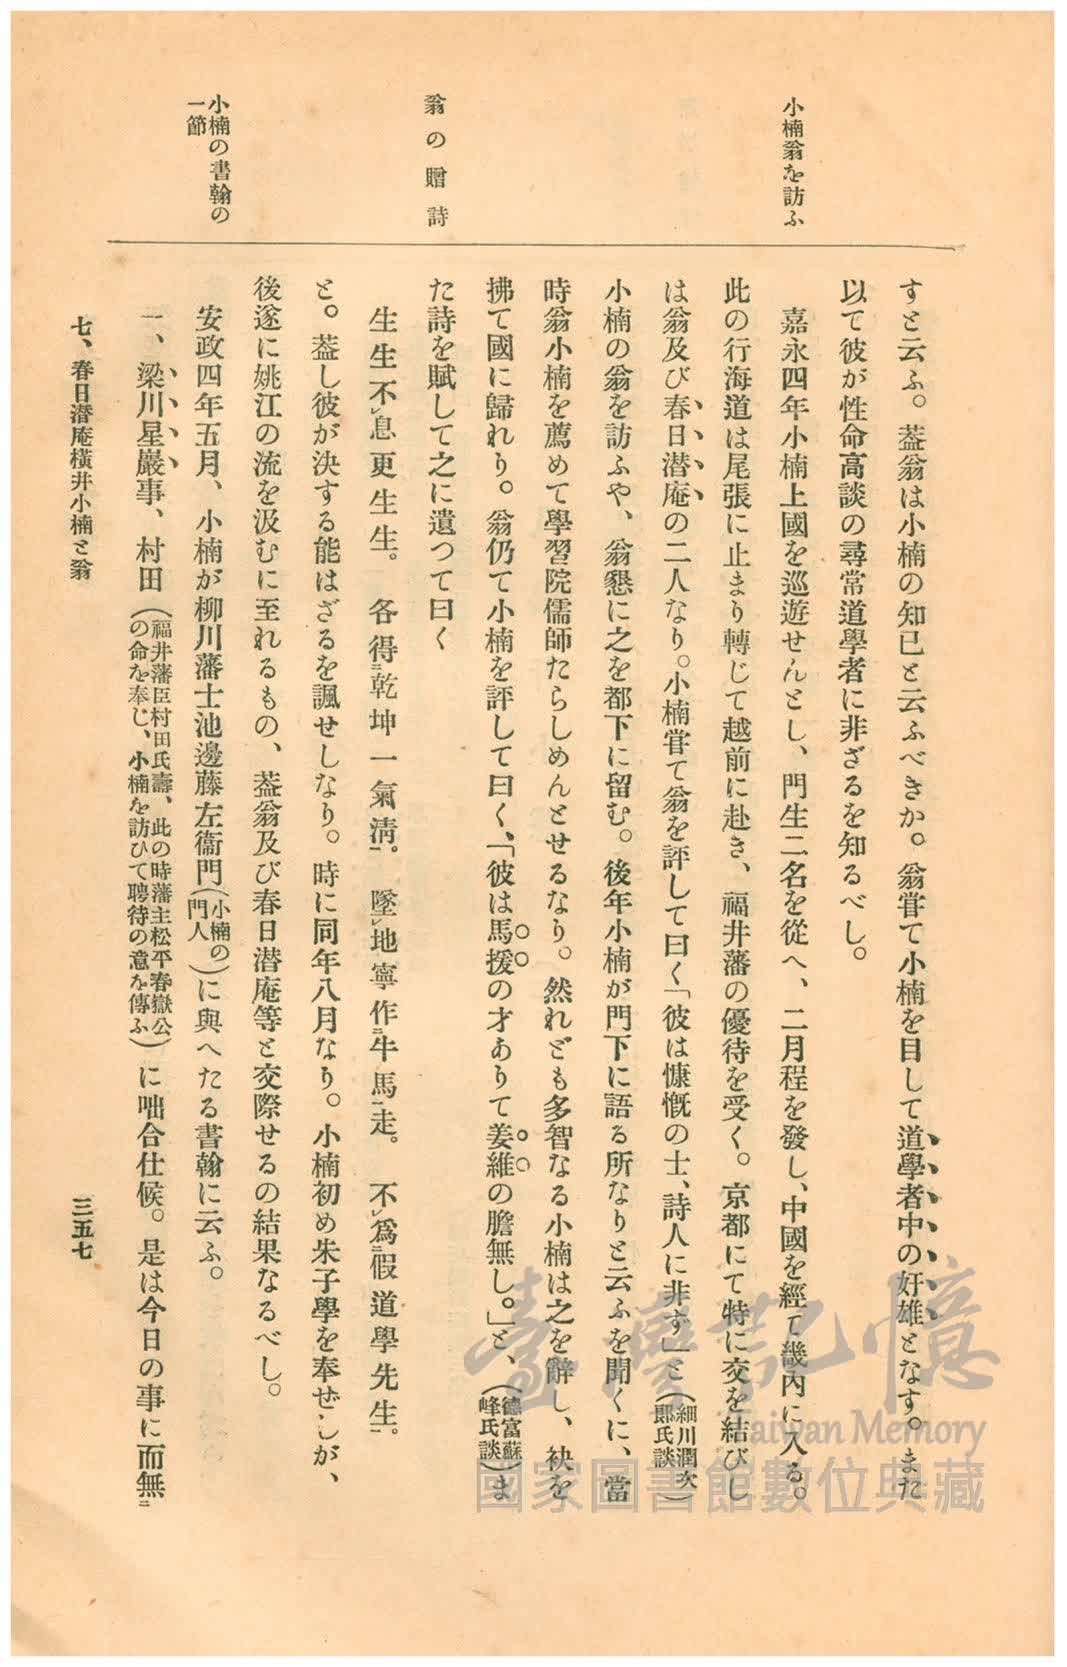 小楠翁を訪ふ
翁の贈詩
小楠の書翰の
一節
すと云ふ。蓋翁は小楠の知己と云ふべきか。翁甞て小楠を目して道學者中の奸雄となす。また
以て彼が性命高談の尋常道學者に非ざるを知るべし。
嘉永四年小楠上國を巡遊せんとし、門生二名を從へ、二月程を發し、中國を經て畿內に入る。
此の行海道は尾張に止まり轉じて越前に赴き、福井藩の優待を受く。京都にて特に交を結びし
は翁及び春日潜庵の二人なり。小楠甞て翁を評して曰く「彼は慷慨の士、詩人に非ず」と(細川潤次郎氏談)
小楠の翁を訪ふや、翁懇に之を都下に留む。後年小楠が門下に語る所なりと云ふを聞くに、當
時翁小楠を薦めて學習院儒師たらしめんとせるなり。然れども多智なる小楠は之を辭し、袂を
拂て國に歸れり。翁仍て小楠を評して曰く、「彼は馬援の才ありて姜維の膽無し。」と、(德富蘇峰氏談)ま
た詩を賦して之に遺つて曰く
生生不レ息更生生。 各得ニ乾坤一氣淸一。 墜レ地寧作ニ牛馬一走。 不レ爲ニ假道學先生一。
と。蓋し彼が決する能はざるを諷せしなり。時に同年八月なり。小楠初め朱子學を奉ぜしが、
後遂に姚江の流を汲むに至れるもの、蓋翁及び春日潜庵等と交際せるの結果なるべし。
安政四年五月、小楠が柳川藩士池邊藤左衞門(小楠の門人)に與へたる書翰に云ふ。
一、梁川星巖事、村田(福井藩臣村田氏壽、此の時藩主松平春嶽公の命を奉じ、小楠を訪ひて聘待の意を傳ふ)に咄合仕候。是は今日の事に而無ニ
七、春日潜庵橫井小楠と翁
三五七
臺灣記憶
Taiwan Memory
國家圖書館數位典藏